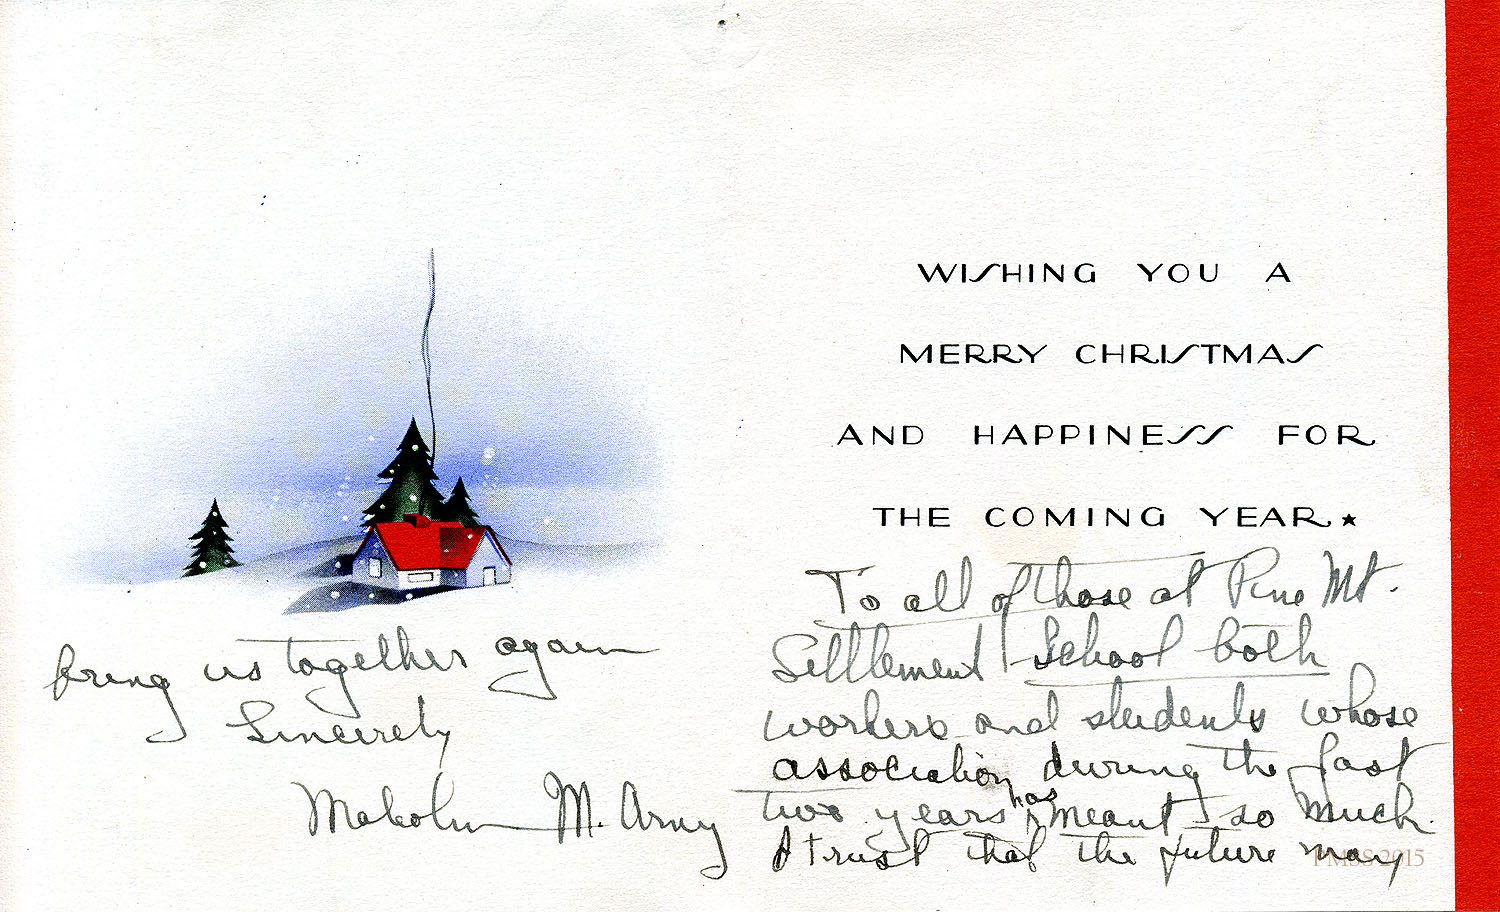 WISHING YOU A
MERRY CHRISTMAS
AND HAPPINESS FOR
THE COMING YEAR★
To all of those at Pine Mt.
Settlement School both
workers and students whose
association during the past
two years has meant so much.
I trust that the future may
bring us together again
Sincerely
Malcolm M. Arny
PMSS 2015